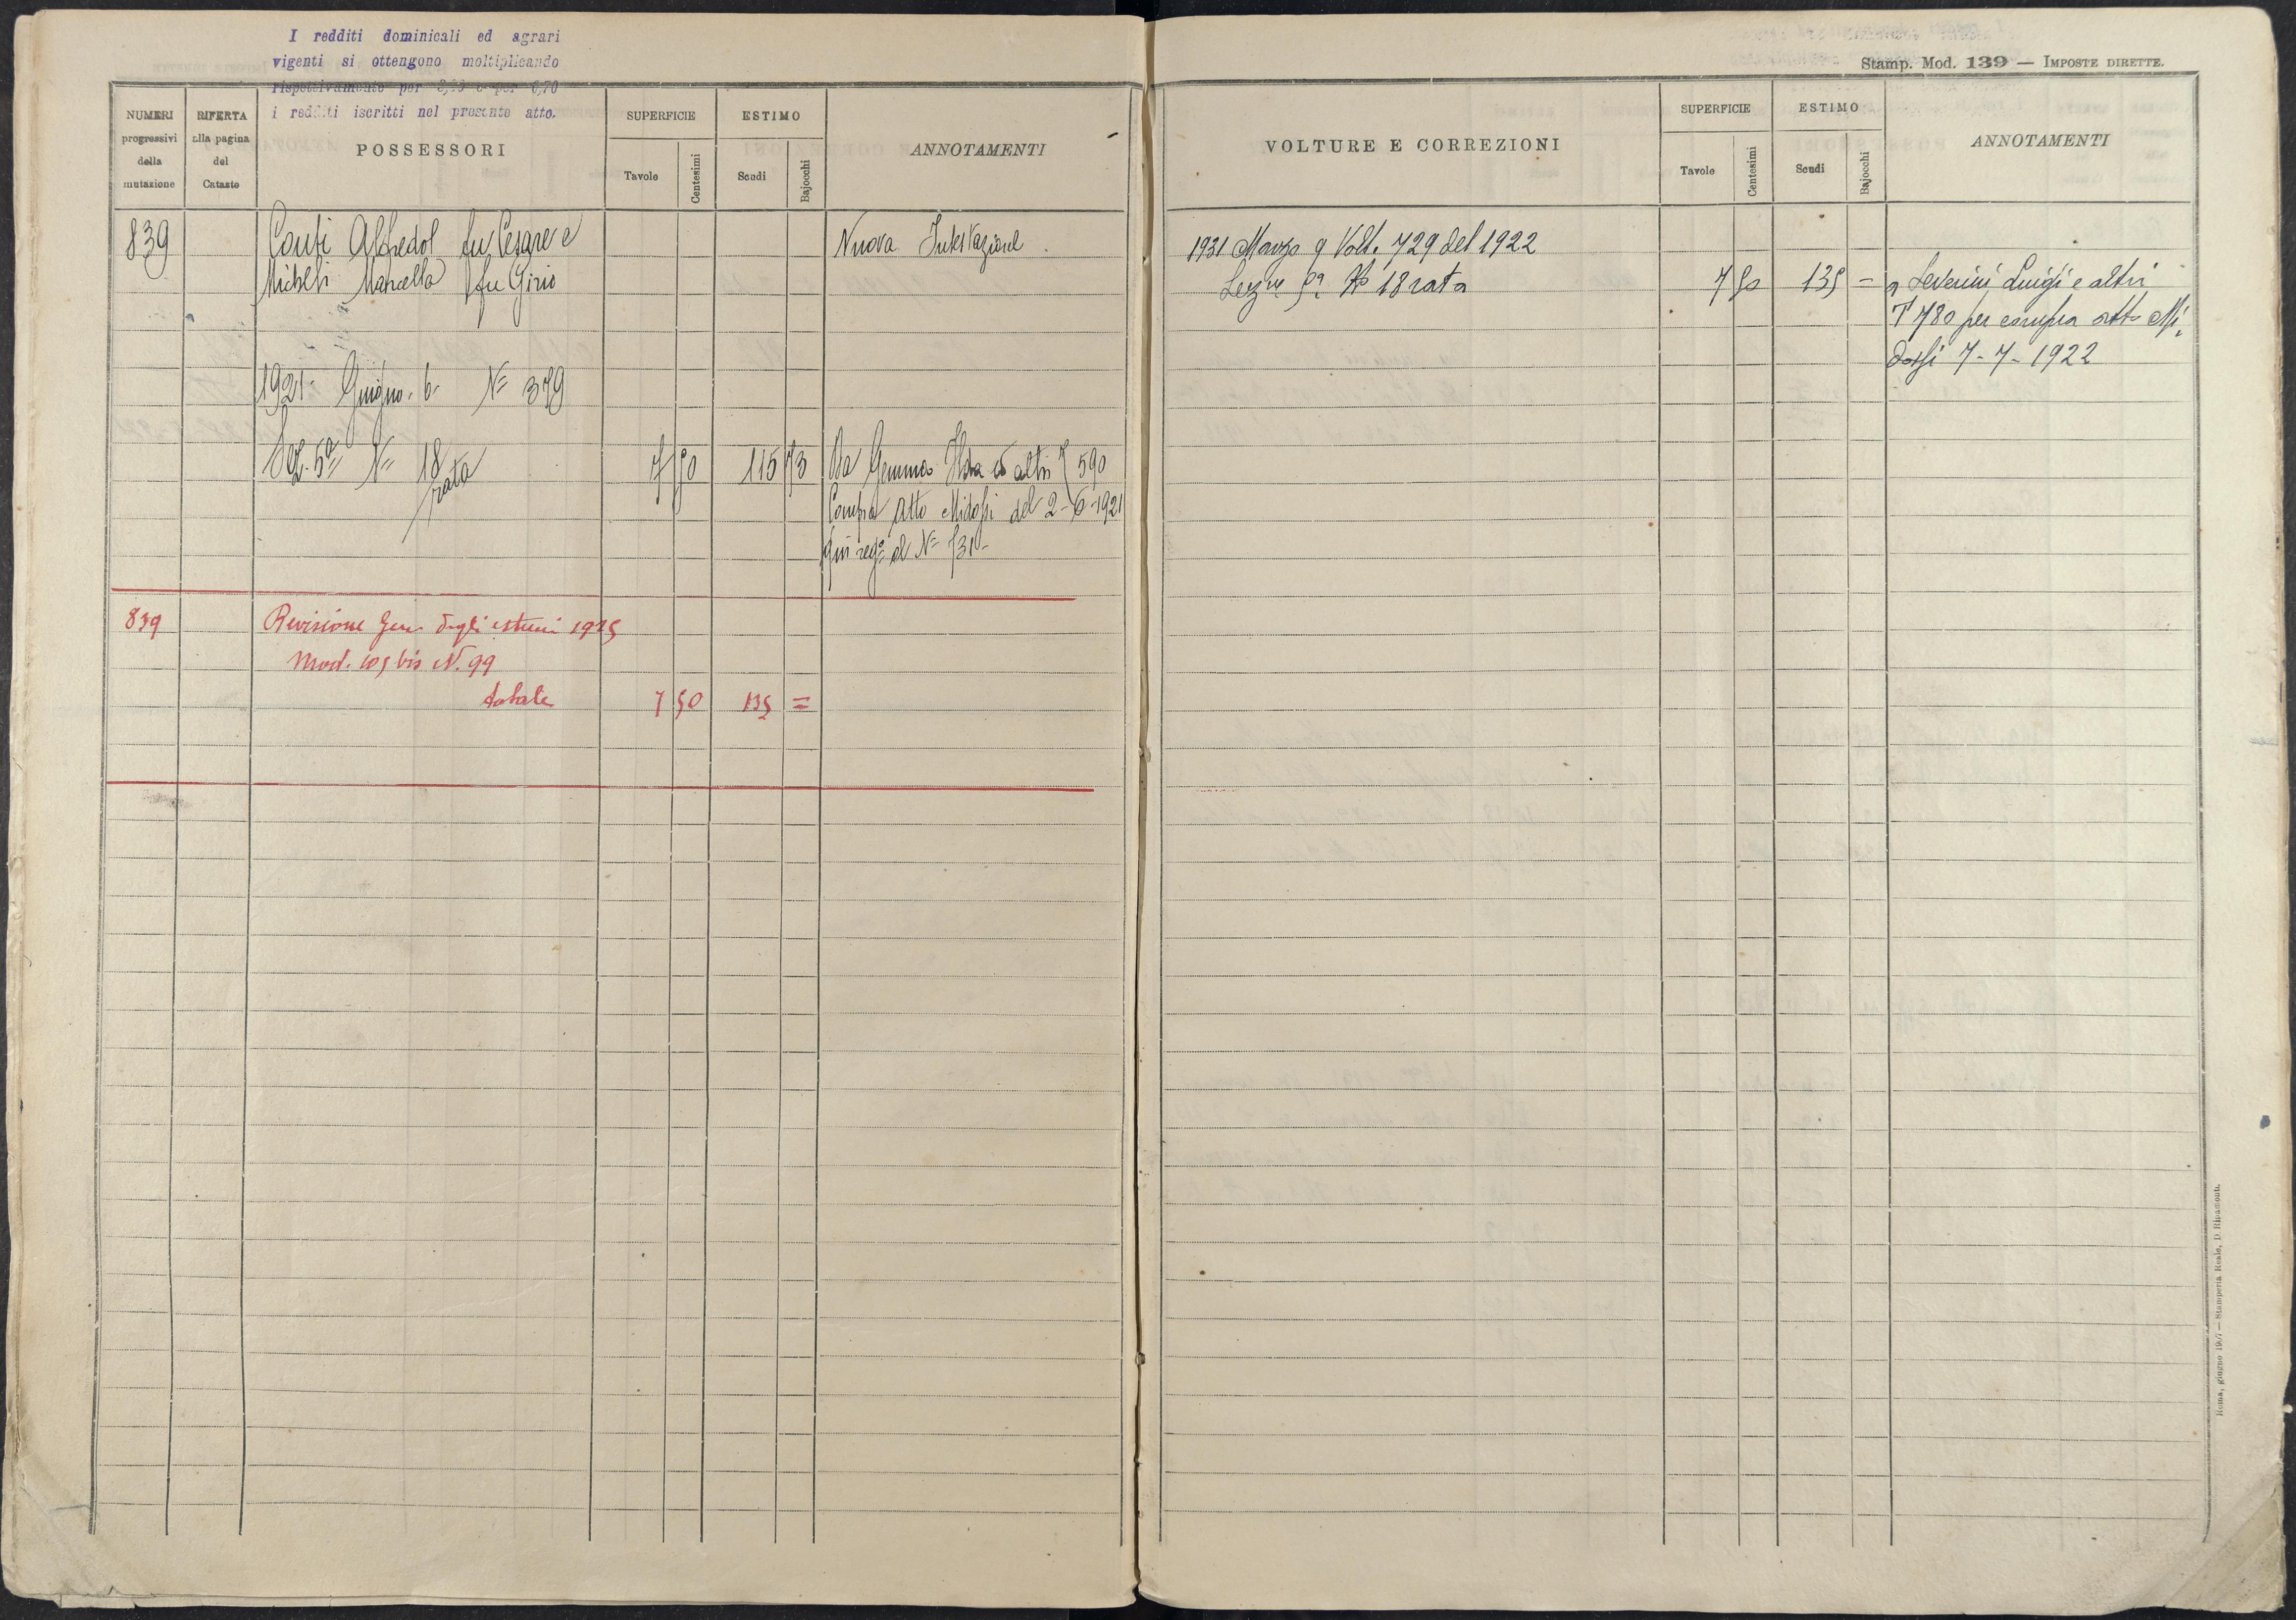 I redditi dominicali ed agrari
vigenti si ottengono moltiplicando
rispettivamente per e per 6,70
i redditi iscritti nel presente atto.
NUMERI
progressivi
della
mutazione
RIFERTA
alla pagina
del
Catasto
POSSESSORI
SUPERFICIE
Tavole
Centesimi
ESTIMO
Scudi
Bajocchi
ANNOTAMENTI
839
Conti Alfredo fu Cesare e
Nuova Intestazione
Micheli Marcella fu Girio
1921 Giugno 6 N= 379
Sez. 5ª N= 18
rata
7 50 115 73
Da Gemma ed altri 590
Compra Atto Midossi del 2-6-1921
Qui reg.º al N= 731-
839
Revisione Gen. degli estimi 1925
Mod. 105 bis N. 99
totale 7 50 135 =
Stamp. Mod. 139 — IMPOSTE DIRETTE.
VOLTURE E CORREZIONI
SUPERFICIE
Tavole
Centesimi
ESTIMO
Scudi
Bajocchi
ANNOTAMENTI
1931 Marzo 9 Volt. 729 del 1922
Sez.ne 5ª No 18 rata
7 50 135 =
a Severini Luigi e altri
T 780 per compra atto Mi
dossi 7-7-1922
Roma, giugno — Stamperia Reale, D. Ripamonti.